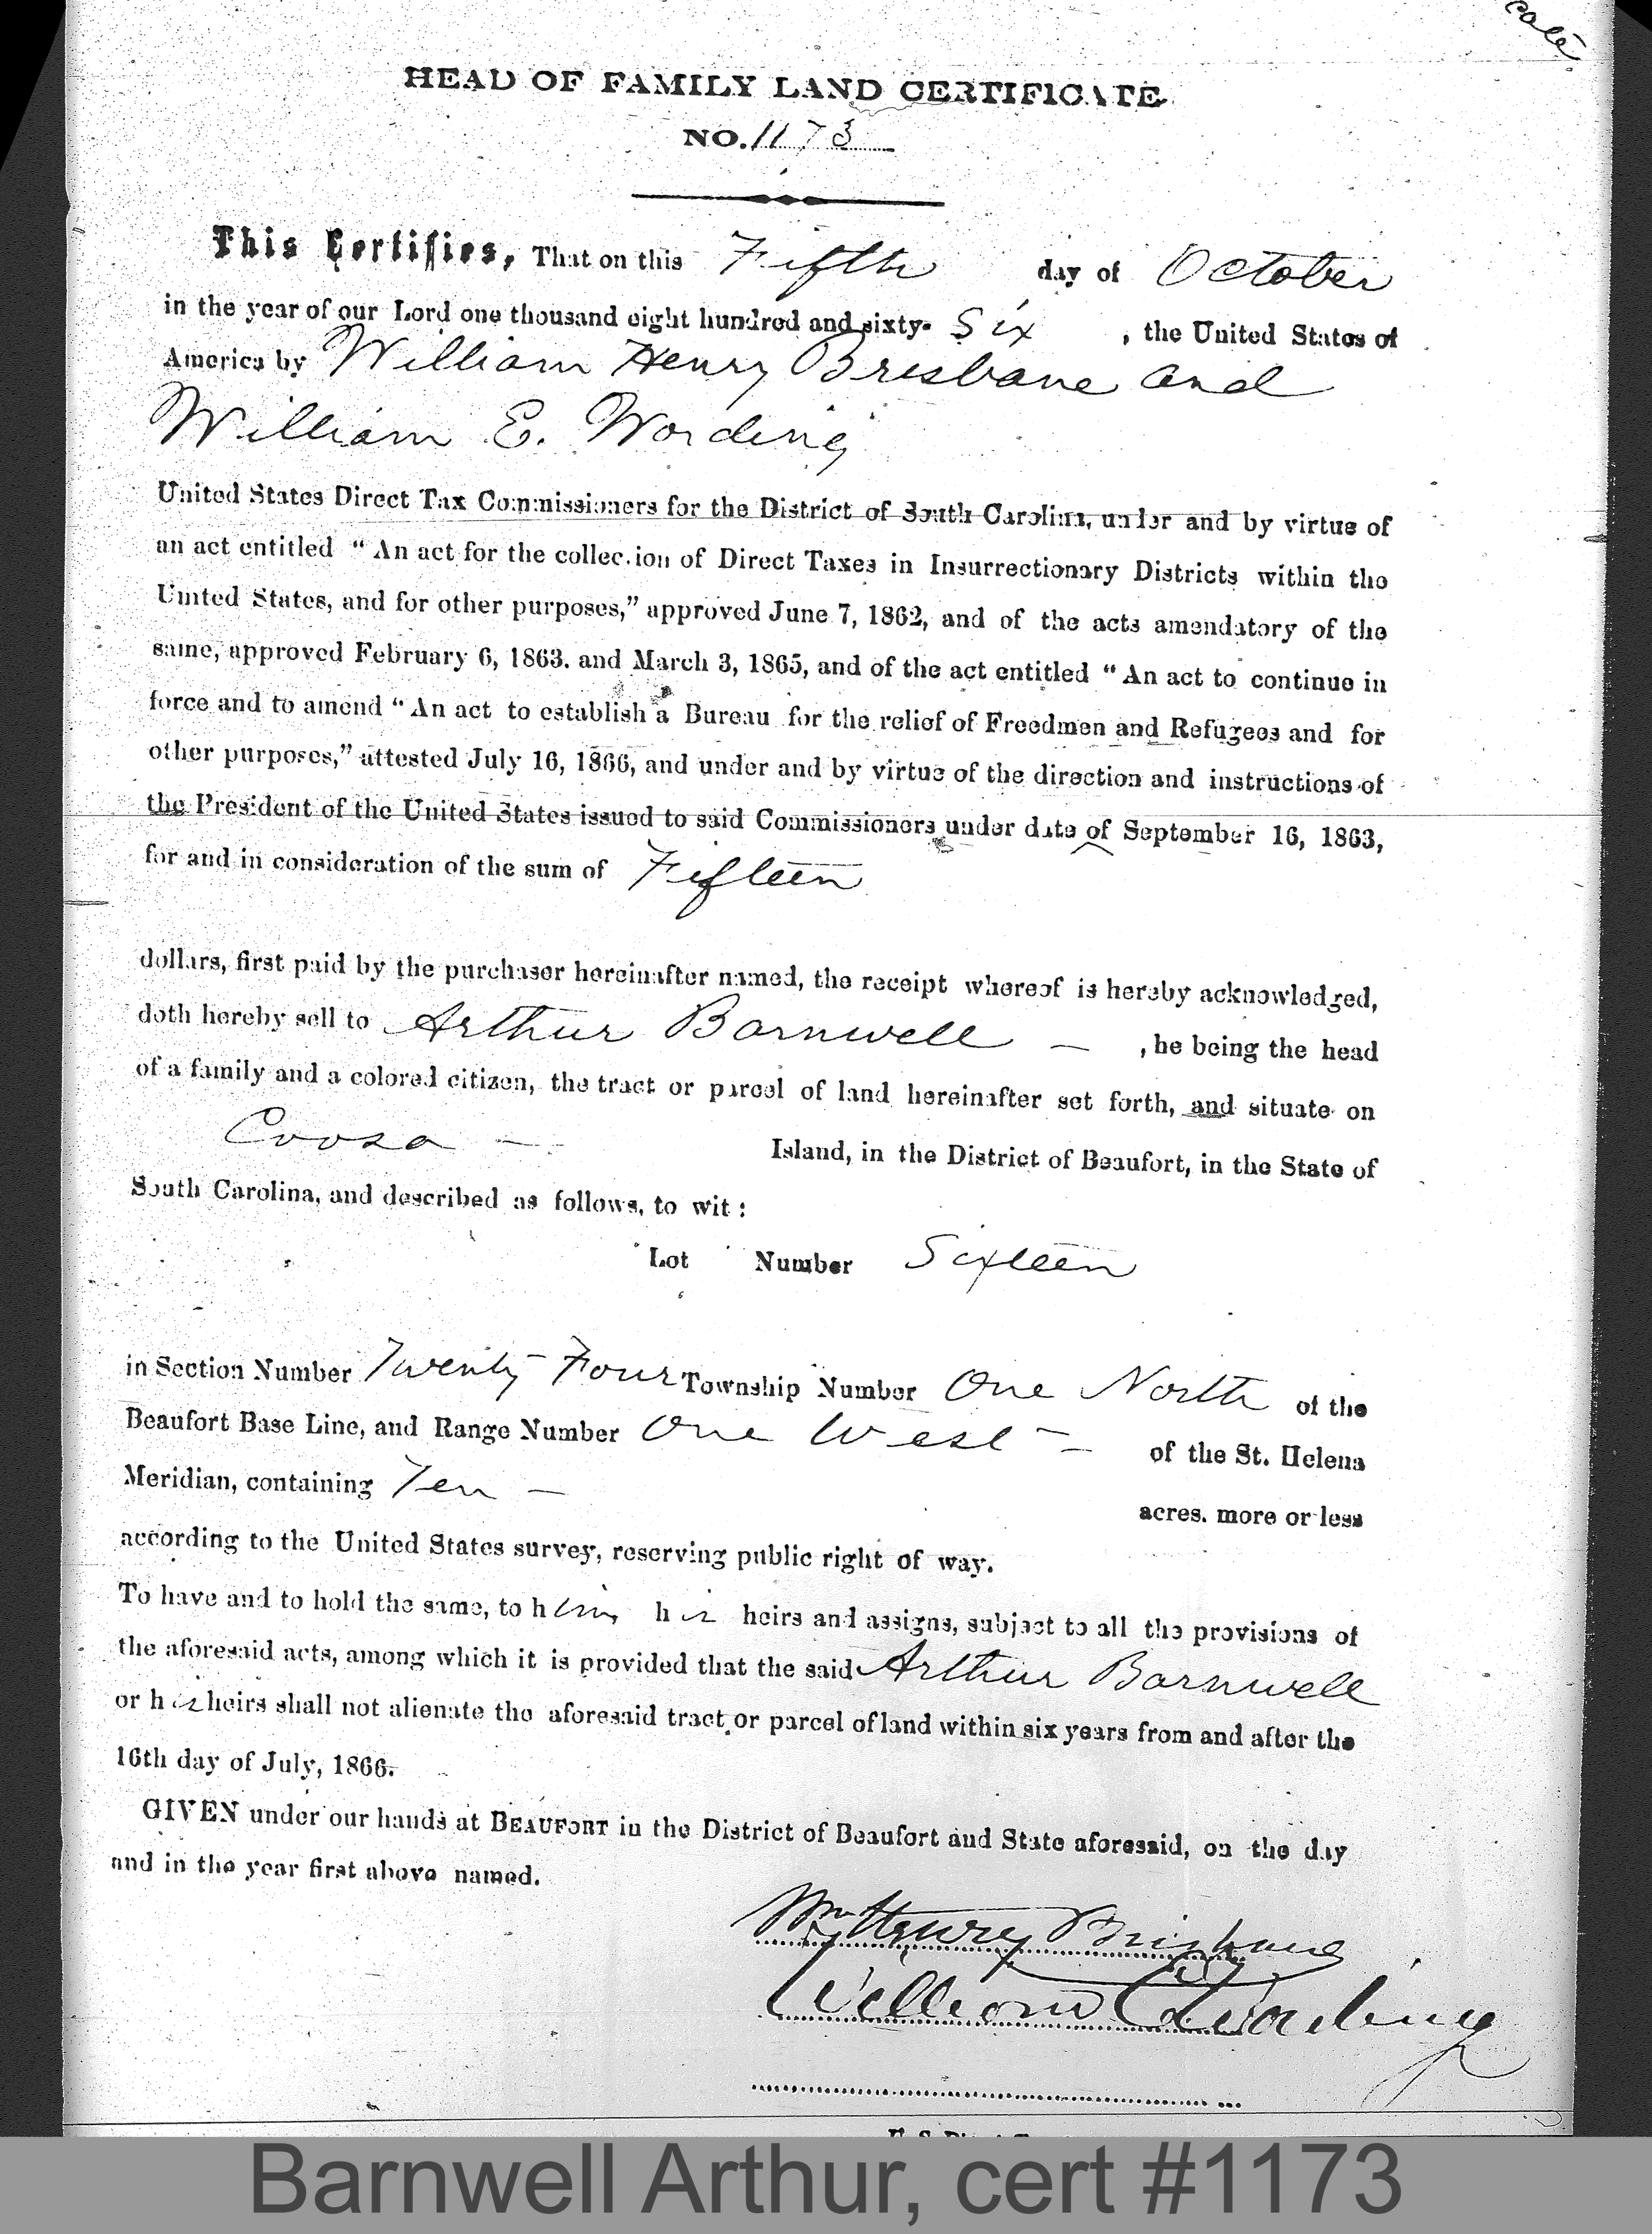 HEAD OF FAMILY LAND CERTIFICATE
NO. 1173
This Certifies, That on this Fifth day of October
in the year of our Lord one thousand eight hundred and sixty-Six, the United States of
America by William Henry Brisbane and
William E. Wording
United States Direct Tax Commissioners for the District of South Carolina, under and by virtue of
an act entitled "An act for the collection of Direct Taxes in Insurrectionary Districts within the
United States, and for other purposes," approved June 7, 1862, and of the acts amendatory of the
same, approved February 6, 1863. and March 3, 1865, and of the act entitled "An act to continue in
force and to amend "An act to establish a Bureau for the relief of Freedmen and Refugees and for
other purposes," attested July 16, 1866, and under and by virtue of the direction and instructions of
the President of the United States issued to said Commissioners under date of September 16, 1863,
for and in consideration of the sum of Fifteen
dollars, first paid by the purchaser hereinafter named, the receipt whereof is hereby acknowledged,
doth hereby sell to Arthur Barnwell — , he being the head
of a family and a colored citizen, the tract or parcel of land hereinafter set forth, and situate on
Coosa — Island, in the District of Beaufort, in the State of
South Carolina, and described as follows, to wit:
Lot Number Sixteen
in Section Number Twenty-Four Township Number One North of the
Beaufort Base Line, and Range Number One West — of the St. Helena
Meridian, containing Ten — acres. more or less
according to the United States survey, reserving public right of way.
To have and to hold the same, to him, his heirs and assigns, subject to all the provisions of
the aforesaid acts, among which it is provided that the said Arthur Barnwell
or his heirs shall not alienate the aforesaid tract or parcel of land within six years from and after the
16th day of July, 1866.
GIVEN under our hands at BEAUFORT in the District of Beaufort and State aforesaid, on the day
and in the year first above named.
Wm Henry Brisbane
William E. Wording
Barnwell Arthur, cert #1173